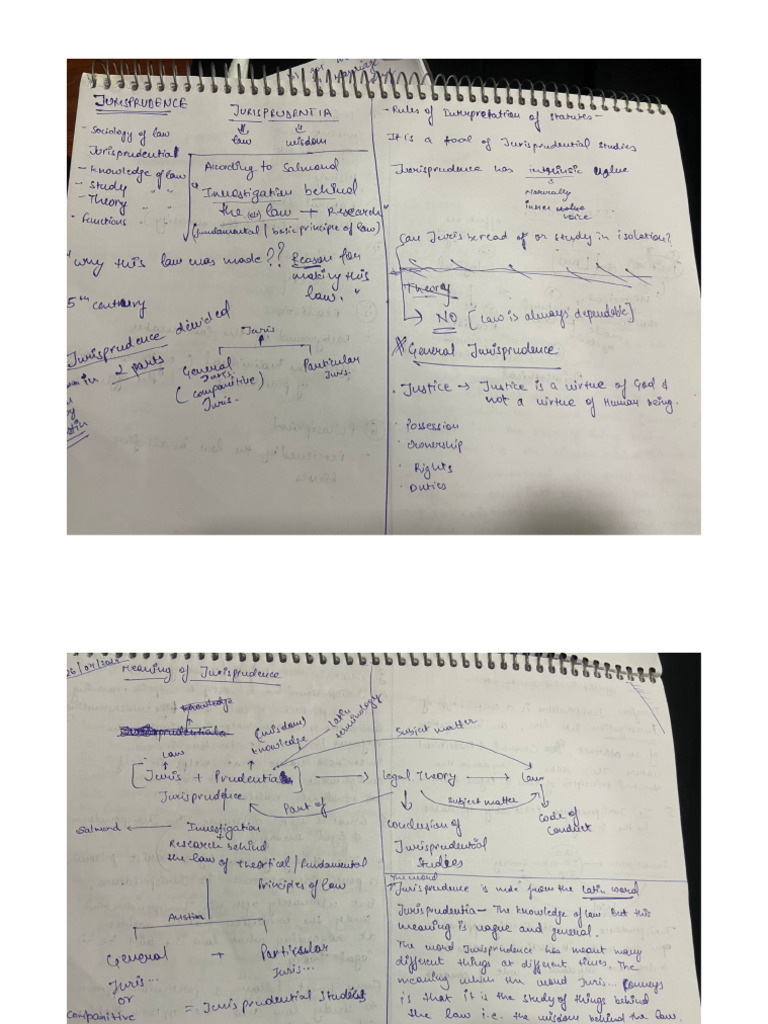 JURISPRUDENCE
- Sociology of law
Jurisprudential
- Knowledge of law
- Study " "
- Theory " "
• Functions " "
JURISPRUDENTIA
law wisdom
According to Salmond
"Investigation behind
the law + Research"
(fundamental / basic principle of law)
"Why this law was made?? Reason for
making this
law."
5th century
Jurisprudence divided
in 2 parts
Juris
General
Juris.
(Companitive)
Juris.
Particular
Juris.
- Rules of Interpretation of Statutes -
It is a tool of Jurisprudential studies
Jurisprudence has intrinsic value
Morally
inner value
voice
Can Juris be read of or study in isolation?
Theory
NO [Law is always dependable]
General Jurisprudence
• Justice → Justice is a virtue of God &
not a virtue of Human Being.
• Possession
• Ownership
• Rights
• Duties
Meaning of Jurisprudence
knowledge
Law
(wisdom)
knowledge
Latin
terminology
Subject matter
[Juris + Prudentia] → Legal Theory → Law
Jurisprudence
Part of
Subject matter
Conclusion of
Jurisprudential
Studies
Code of
Conduct
Salmond ← Investigation
+
Research behind
the law of theortical / fundamental
Principles of law
Austin
General + Particular
Juris... Juris...
or
Companitive = Jurisprudential Studies
The word
Jurisprudence is made from the Latin word
Jurisprudentia - The knowledge of law. But this
meaning is vague and general.
The word Jurisprudence has meant many
different things at different times. The
meaning which the word Juris... Conveys
is that it is the study of things behind
the law i.e. the wisdom behind the law.